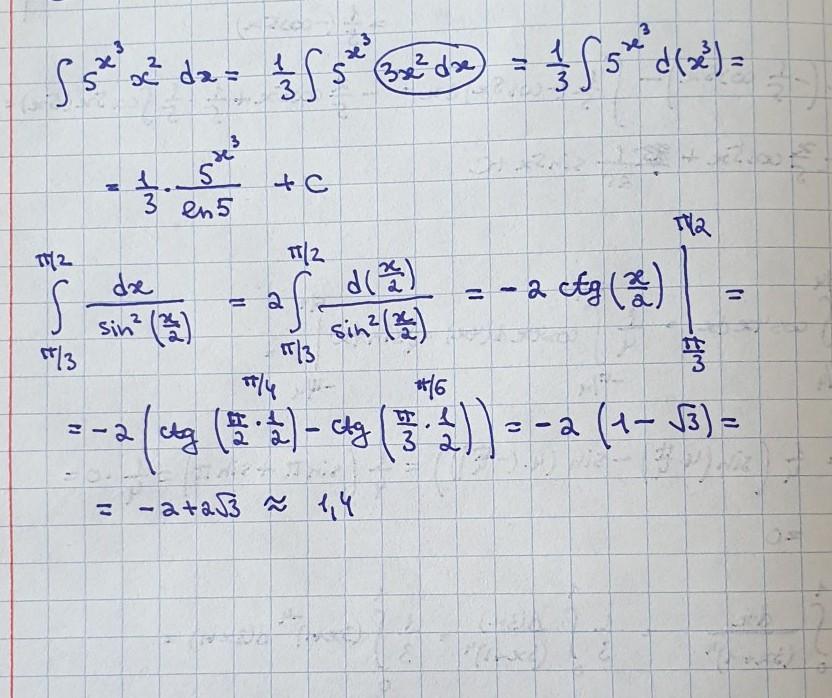 ∫ 5^{x^3} x^2 dx = 1/3 ∫ 5^{x^3} (3x^2 dx) = 1/3 ∫ 5^{x^3} d(x^3) =
= 1/3 · 5^{x^3}/ln5 + C
∫_{π/3}^{π/2} dx/sin^2(x/2) = 2 ∫_{π/3}^{π/2} d(x/2)/sin^2(x/2) = -2 ctg(x/2) |_{π/3}^{π/2} =
π/4 π/6
= -2 (ctg (π/2 · 1/2) - ctg (π/3 · 1/2)) = -2 (1 - √3) =
= -2+2√3 ≈ 1,4